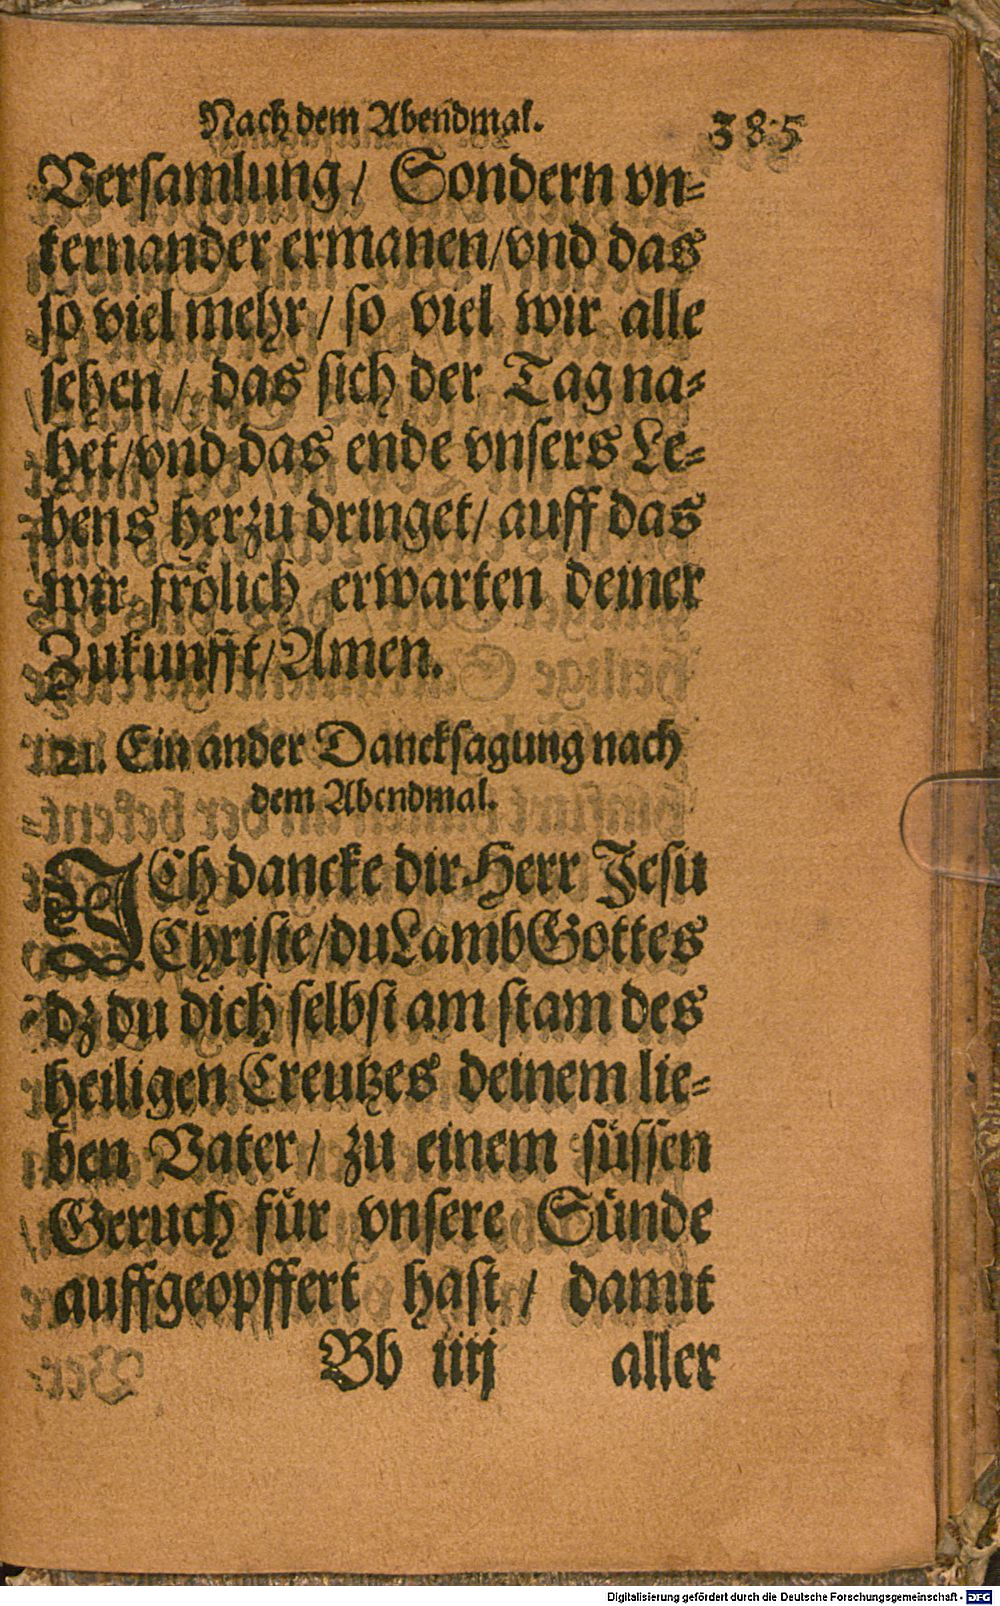 Nach dem Abendmal. 385
Versamlung/ Sondern vn⸗
ternander ermanen/vnd das
so viel mehr/ so viel wir alle
sehen/ das sich der Tag na⸗
het/vnd das ende vnsers Le⸗
bens herzu dringet/ auff das
wir frölich erwarten deiner
Zukunfft/Amen.
21. Ein ander Dancksagung nach
dem Abendmal.
ICh dancke dir Herr Jesu
Christe/du Lamb Gottes
dz du dich selbst am stam des
heiligen Creutzes deinem lie⸗
ben Vater/ zu einem süssen
Geruch für vnsere Sünde
auffgeopffert hast/ damit
Bb iiij aller
Digitalisierung gefördert durch die Deutsche Forschungsgemeinschaft - DFG